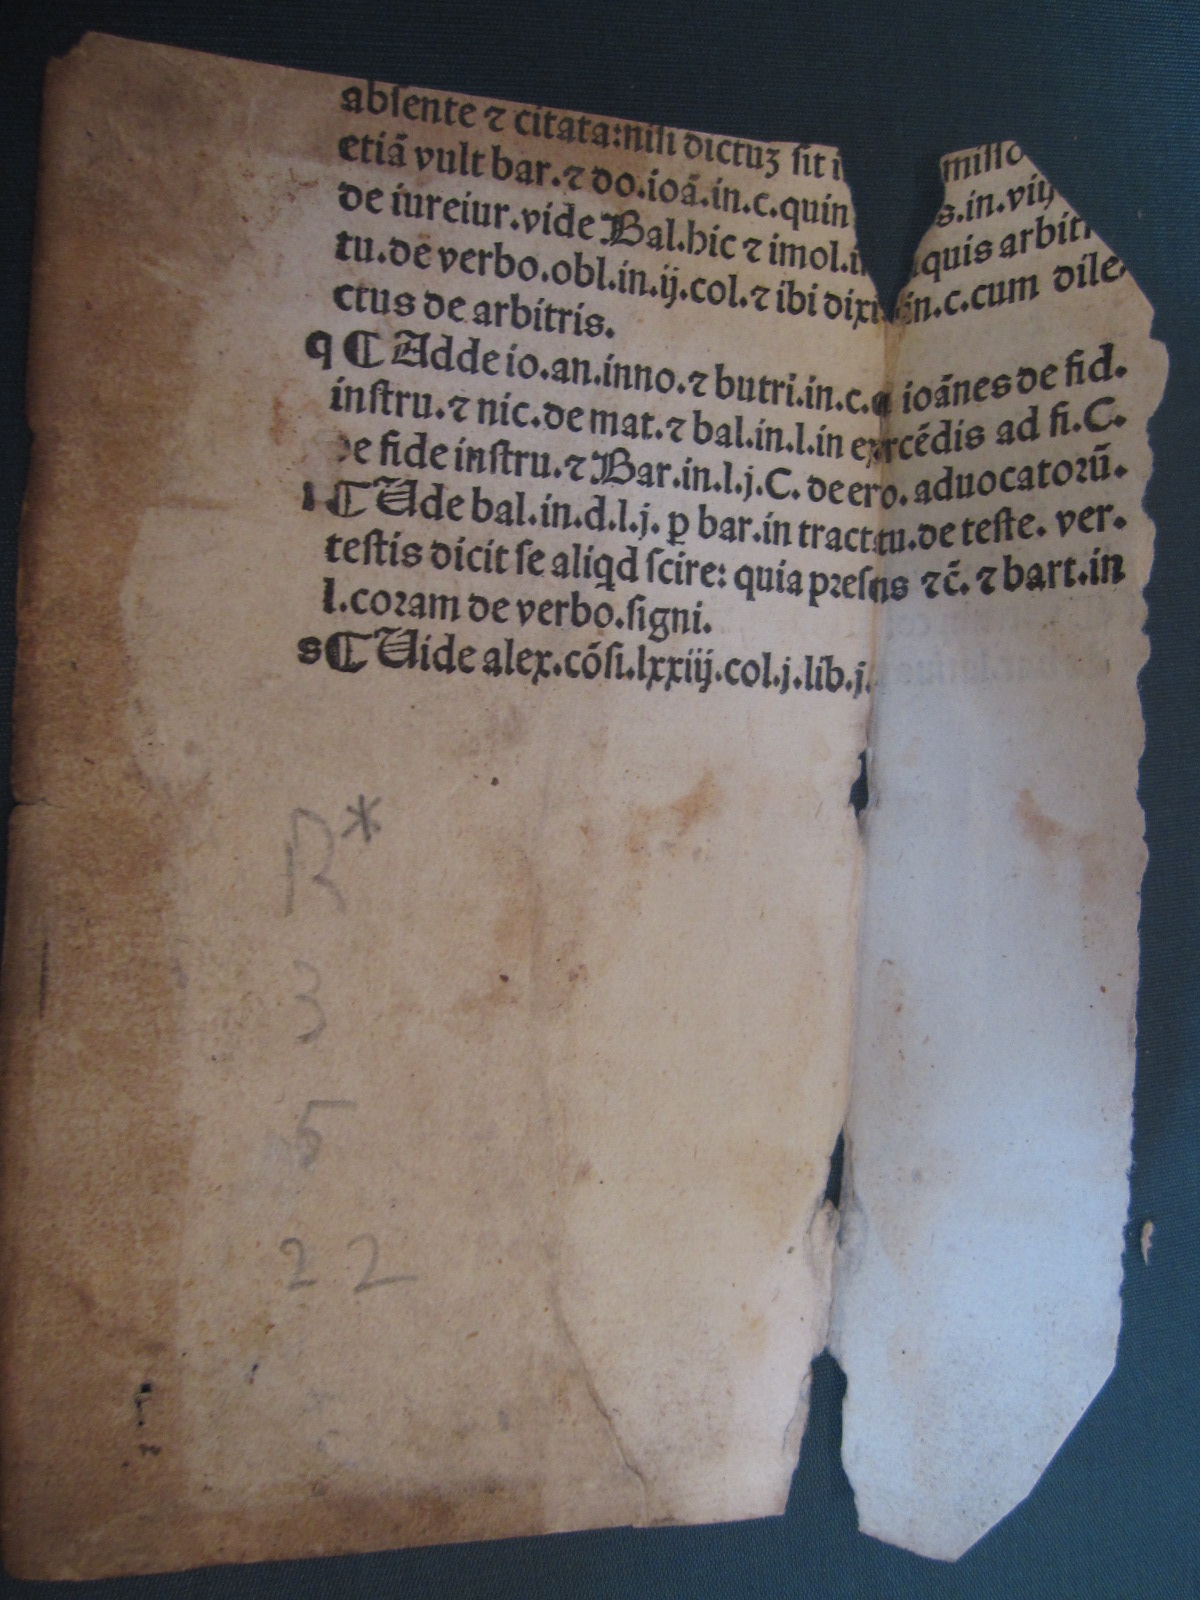 absente ⁊ citata:nisi dictuꝫ sit i
etiā vult bar.⁊ do.ioā.in.c.quin s.in.viij
de iureiur.vide Bal.hic ⁊ imol.i quis arbitr
tu.de verbo.obl.in.ij.col.⁊ ibi dixi in.c.cum dile
ctus de arbitris.
q ¶ Adde io.an.inno.⁊ butri.in.c.q ioānes de fid.
instru.⁊ nic.de mat.⁊ bal.in.l.in exercēdis ad fi.C.
de fide instru.⁊ Bar.in.l.j.C. de ero. aduocatorū.
¶ Uide bal.in.d.l.j. ꝑ bar.in tractatu.de teste. ver.
testis dicit se aliqd scire: quia presens ⁊c̄. ⁊ bart.in
l.coram de verbo.signi.
s ¶ Uide alex.cōsi.lxxiij.col.j.lib.j.
R*
3
5
22